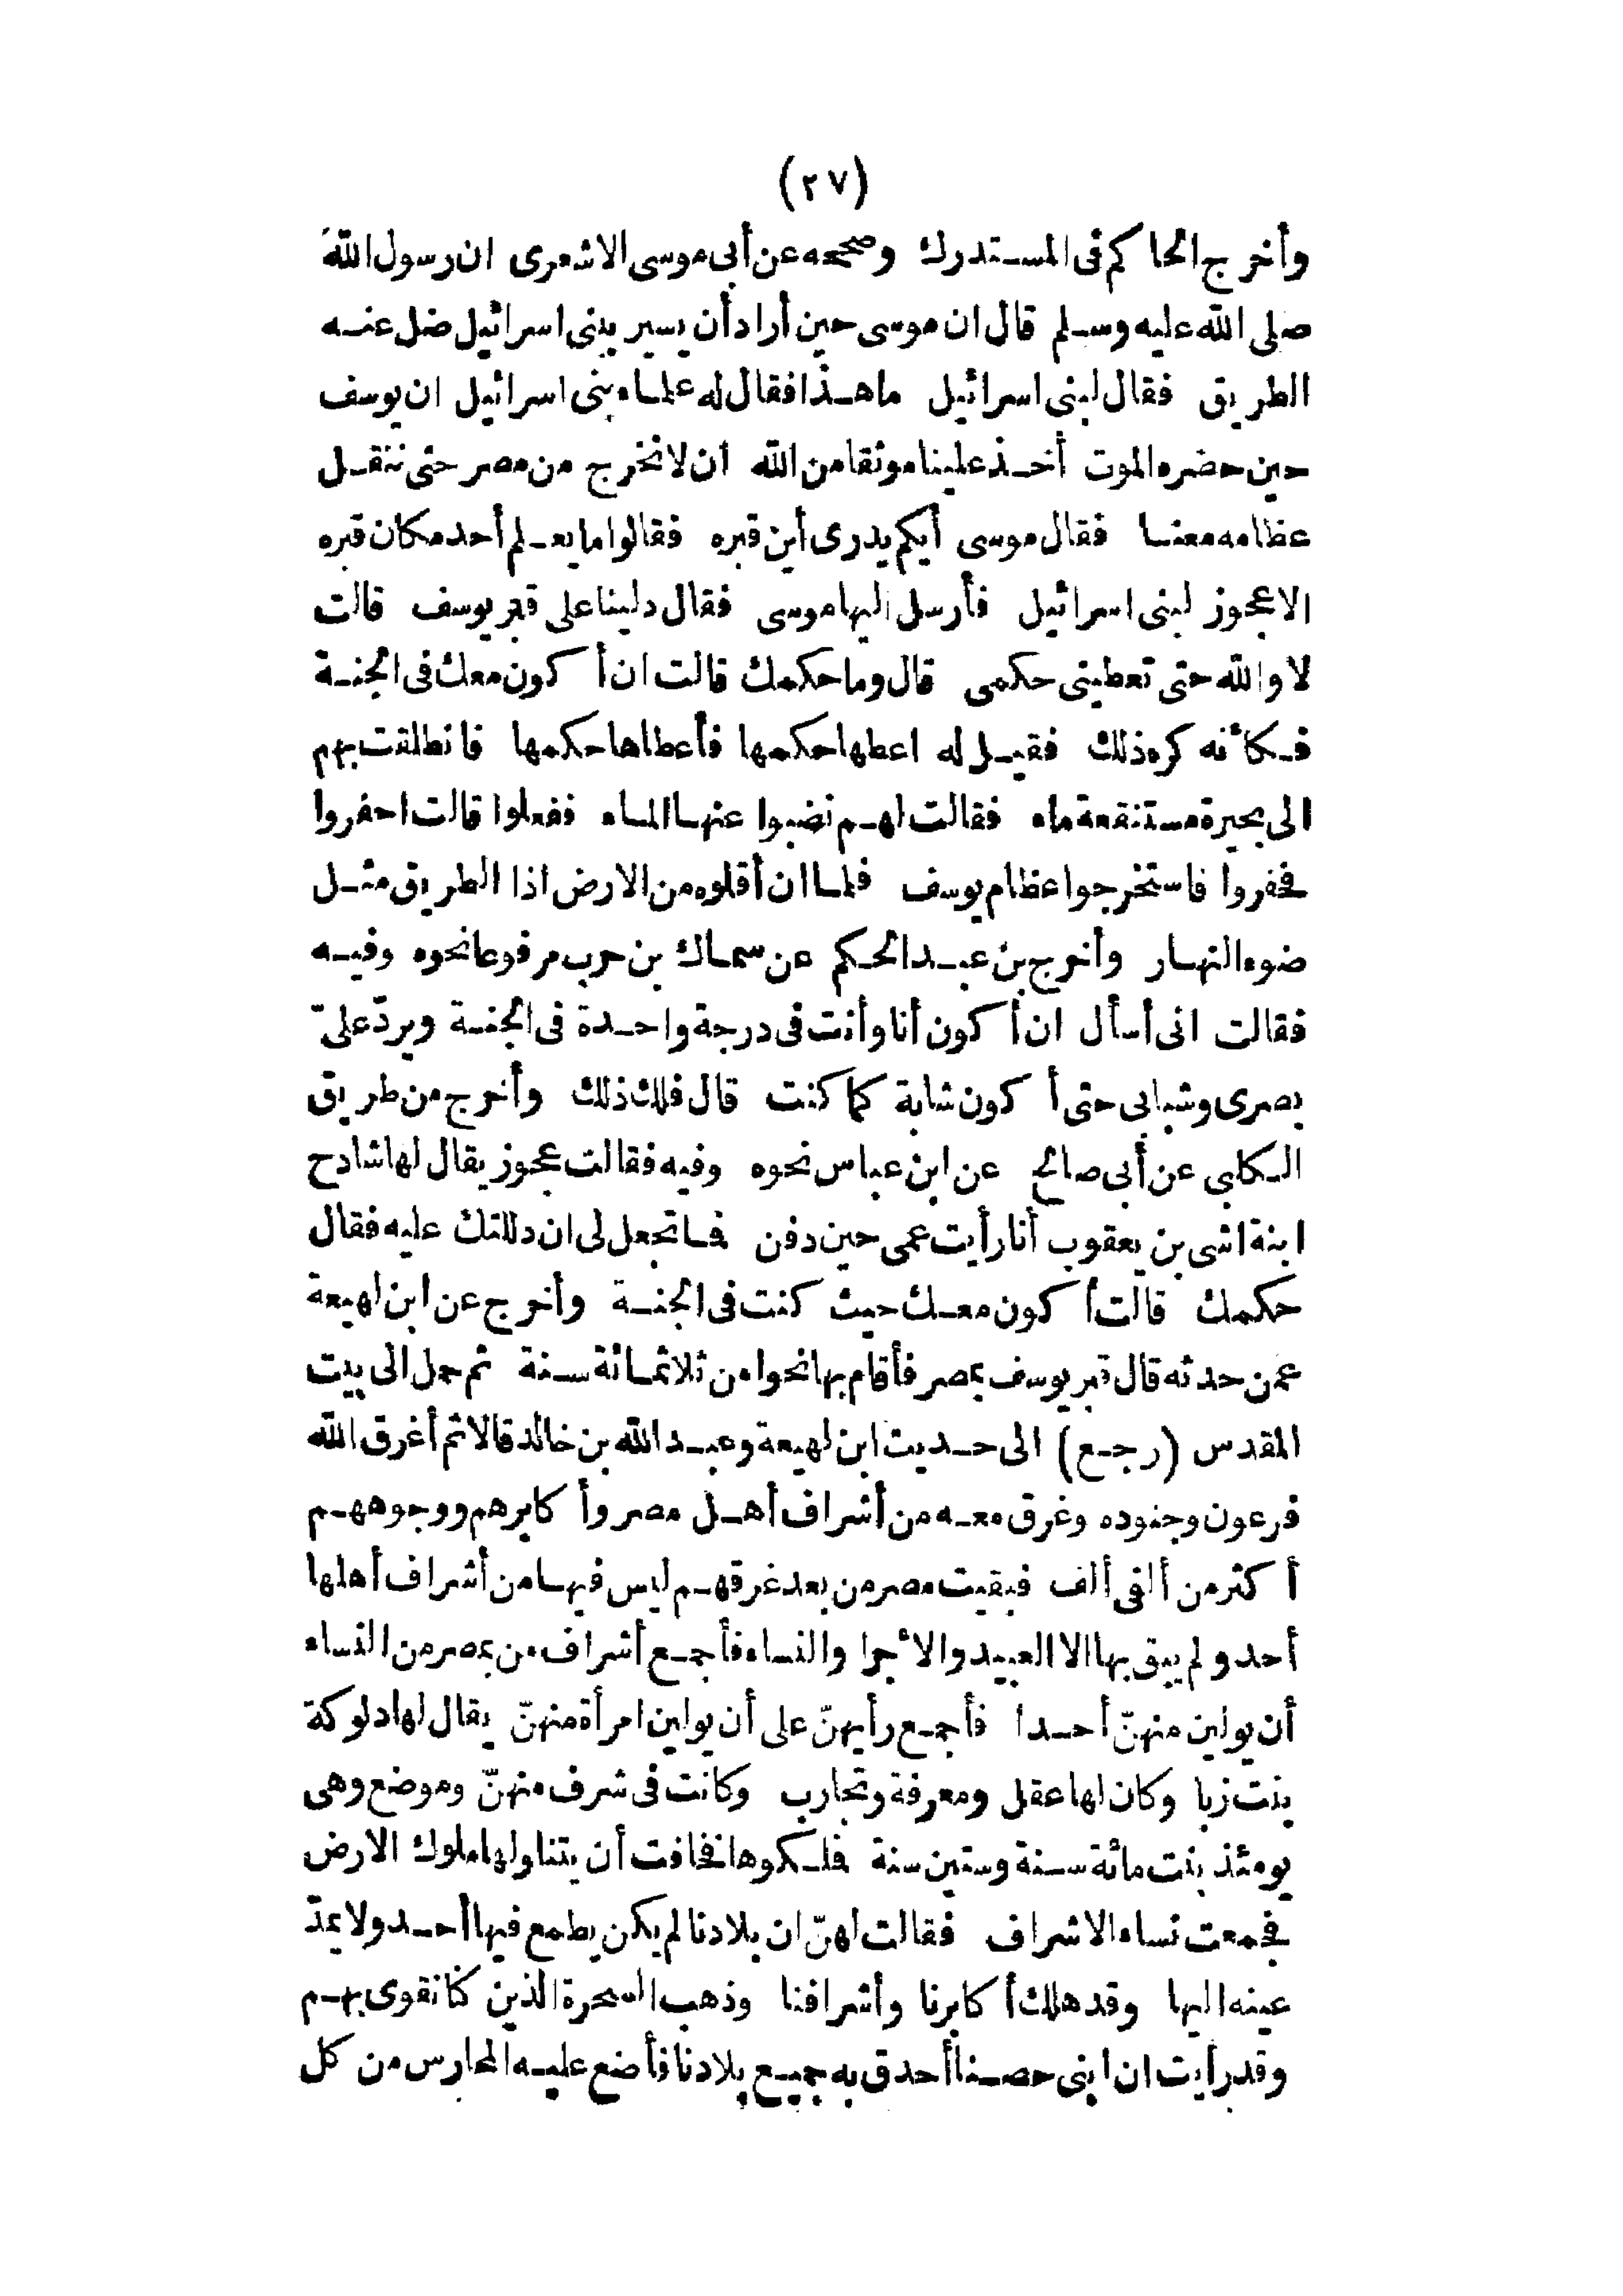 (٢٧)
وأخرج الحاكم فى المستدرك وصححه عن أبى موسى الاشعرى ان رسول الله
صلى الله عليه وسلم قال ان موسى حين أراد أن يسير ببنى اسرائيل ضل عنه
الطريق فقال لبنى اسرائيل ما هذا فقال له علماء بنى اسرائيل ان يوسف
حين حضره الموت أخذ علينا موثقا من الله ان لا نخرج من مصر حتى ننقل
عظامه معنا فقال موسى أيكم يدرى أين قبره فقالوا ما يعلم أحد مكان قبره
الا عجوز لبنى اسرائيل فأرسل اليها موسى فقال دلينا على قبر يوسف قالت
لا والله حتى تعطينى حكمى قال وما حكمك قالت ان أكون معك فى الجنة
فكأنه كره ذلك فقيل له اعطها حكمها فأعطاها حكمها فانطلقت بهم
الى بحيرة مستنقعة ماء فقالت لهم نضبوا عنها الماء ففعلوا قالت احفروا
فحفروا فاستخرجوا عظام يوسف فلما ان أقلوه من الارض اذا الطريق مثل
ضوء النهار وأخرج بن عبد الحكم عن سماك بن حرب مرفوعا نحوه وفيه
فقالت انى أسأل ان أكون أنا وأنت فى درجة واحدة فى الجنة ويردّ علىّ
بصرى وشبابى حتى أكون شابة كما كنت قال فلك ذلك وأخرج من طريق
الكلبى عن أبى صالح عن ابن عباس نحوه وفيه فقالت عجوز يقال لها شادح
ابنة اشى بن يعقوب أنا رأيت عمى حين دفن فما تجعل لى ان دللتك عليه فقال
حكمك قالت أكون معك حيث كنت فى الجنة وأخرج عن ابن لهيعة
عمن حدثه قال قبر يوسف بمصر فأقام بها نحوا من ثلاثمائة سنة ثم حمل الى بيت
المقدس (رجع) الى حديث ابن لهيعة وعبد الله بن خالد قالا ثم أغرق الله
فرعون وجنوده وغرق معه من أشراف أهل مصر وأكابرهم ووجوههم
أكثر من ألفى ألف فبقيت مصر من بعد غرقهم ليس فيها من أشراف أهلها
أحد ولم يبق بها الا العبيد والأجرا والنساء فأجمع أشراف من بمصر من النساء
أن يولين منهنّ أحدا فأجمع رأيهنّ على أن يولين امرأة منهنّ يقال لها دلوكة
بنت زبا وكان لها عقل ومعرفة وتجارب وكانت فى شرف منهنّ وموضع وهى
يومئذ بنت مائة سنة وستين سنة فملكوها فخافت أن يتناولها ملوك الارض
فجمعت نساء الاشراف فقالت لهنّ ان بلادنا لم يكن يطمع فيها أحد ولا يمدّ
عينه اليها وقد هلك أكابرنا وأشرافنا وذهب السحرة الذين كنا نقوى بهم
وقد رأيت ان ابنى حصنا أحدق به جميع بلادنا فأضع عليه المحارس من كل